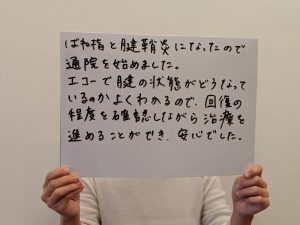 ばね指と腱鞘炎になったので
通院を始めました。
エコーで腱の状態がどうなって
いるのかよくわかるので、回復の
程度を確認しながら治療を
進めることができ、安心でした。